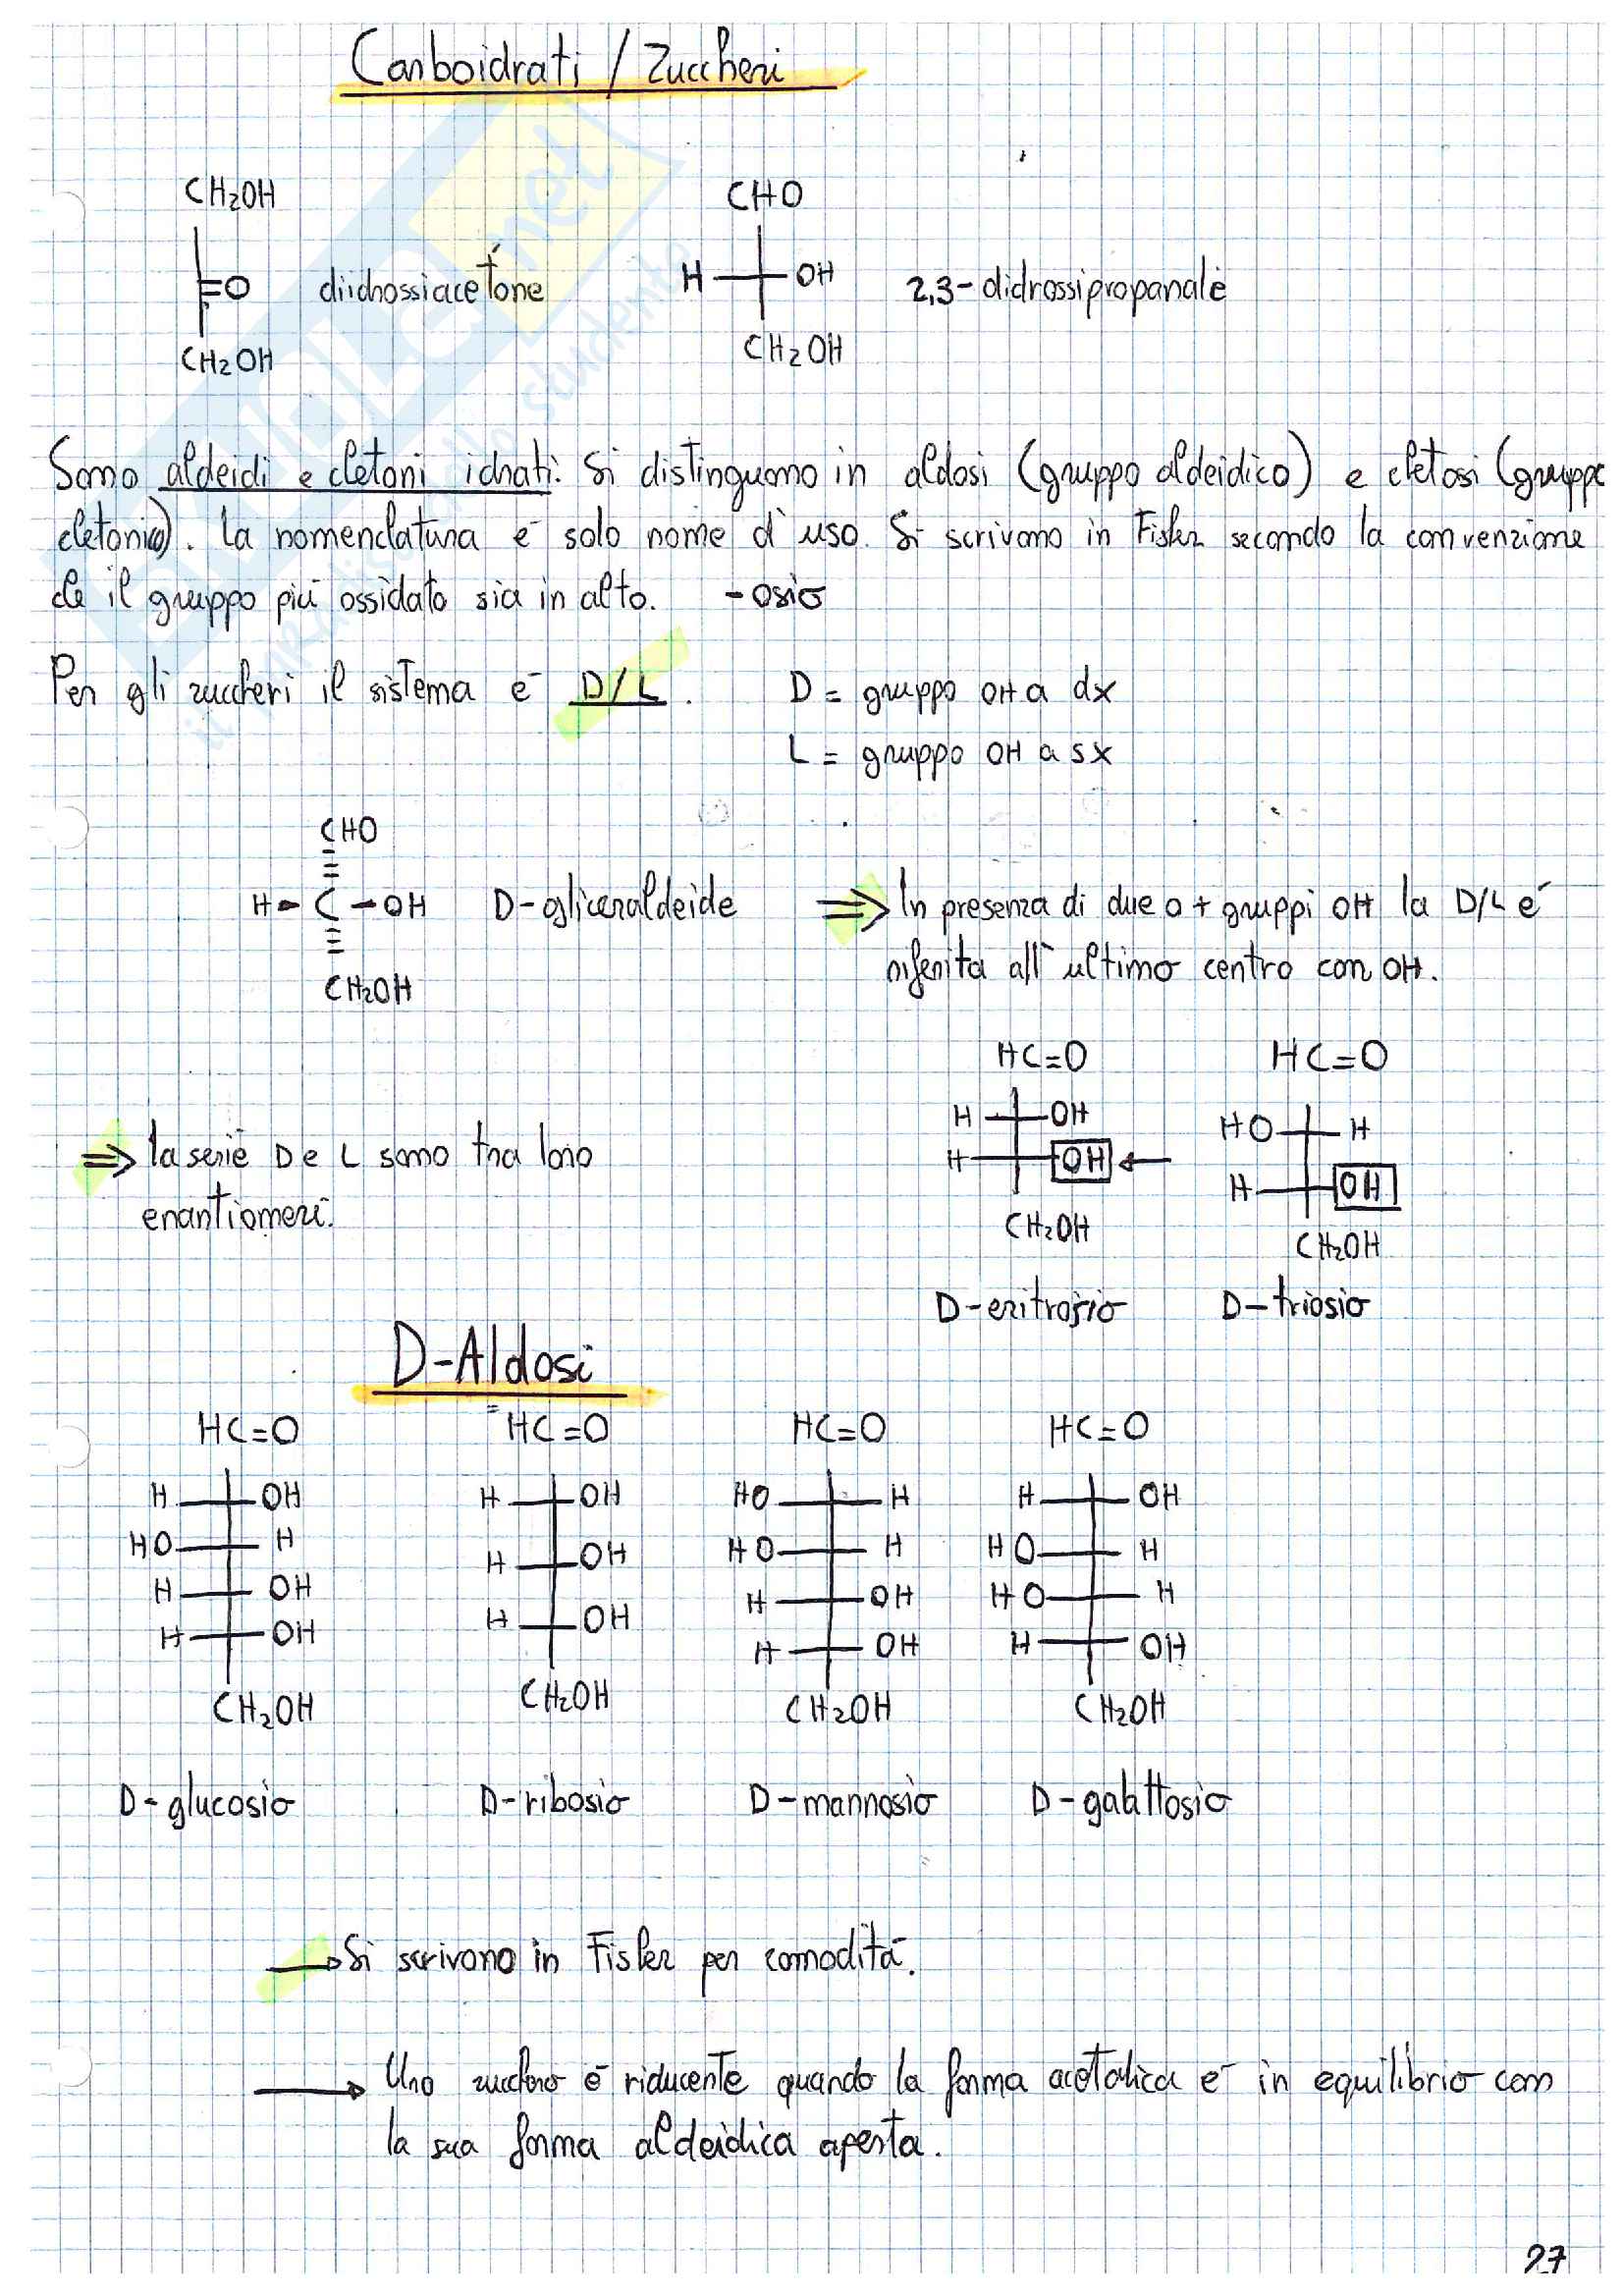 Carboidrati / Zuccheri
CH₂OH
=O
CH₂OH
diidrossiacetone
CHO
H OH
CH₂OH
2,3-didrossipropanale
Sono aldeidi e chetoni idrati. Si distinguono in aldosi (gruppo aldeidico) e chetosi (gruppo
chetonico). La nomenclatura è solo nome d'uso. Si scrivono in Fisher secondo la convenzione
che il gruppo più ossidato sia in alto. -osio
Per gli zuccheri il sistema è D/L. D = gruppo OH a dx
L = gruppo OH a sx
CHO
H - C - OH
CH₂OH
D-gliceraldeide
⇒ In presenza di due o + gruppi OH la D/L è
riferita all'ultimo centro con OH.
⇒ la serie D e L sono tra loro
enantiomeri.
HC=O
H OH
H OH ←
CH₂OH
D-eritrosio
HC=O
HO H
H OH
CH₂OH
D-triosio
D-Aldosi
HC=O
H OH
HO H
H OH
H OH
CH₂OH
D-glucosio
HC=O
H OH
H OH
H OH
CH₂OH
D-ribosio
HC=O
HO H
HO H
H OH
H OH
CH₂OH
D-mannosio
HC=O
H OH
HO H
HO H
H OH
CH₂OH
D-galattosio
→ Si scrivono in Fisher per comodità.
→ Uno zucchero è riducente quando la forma acetalica è in equilibrio con
la sua forma aldeidica aperta.
27